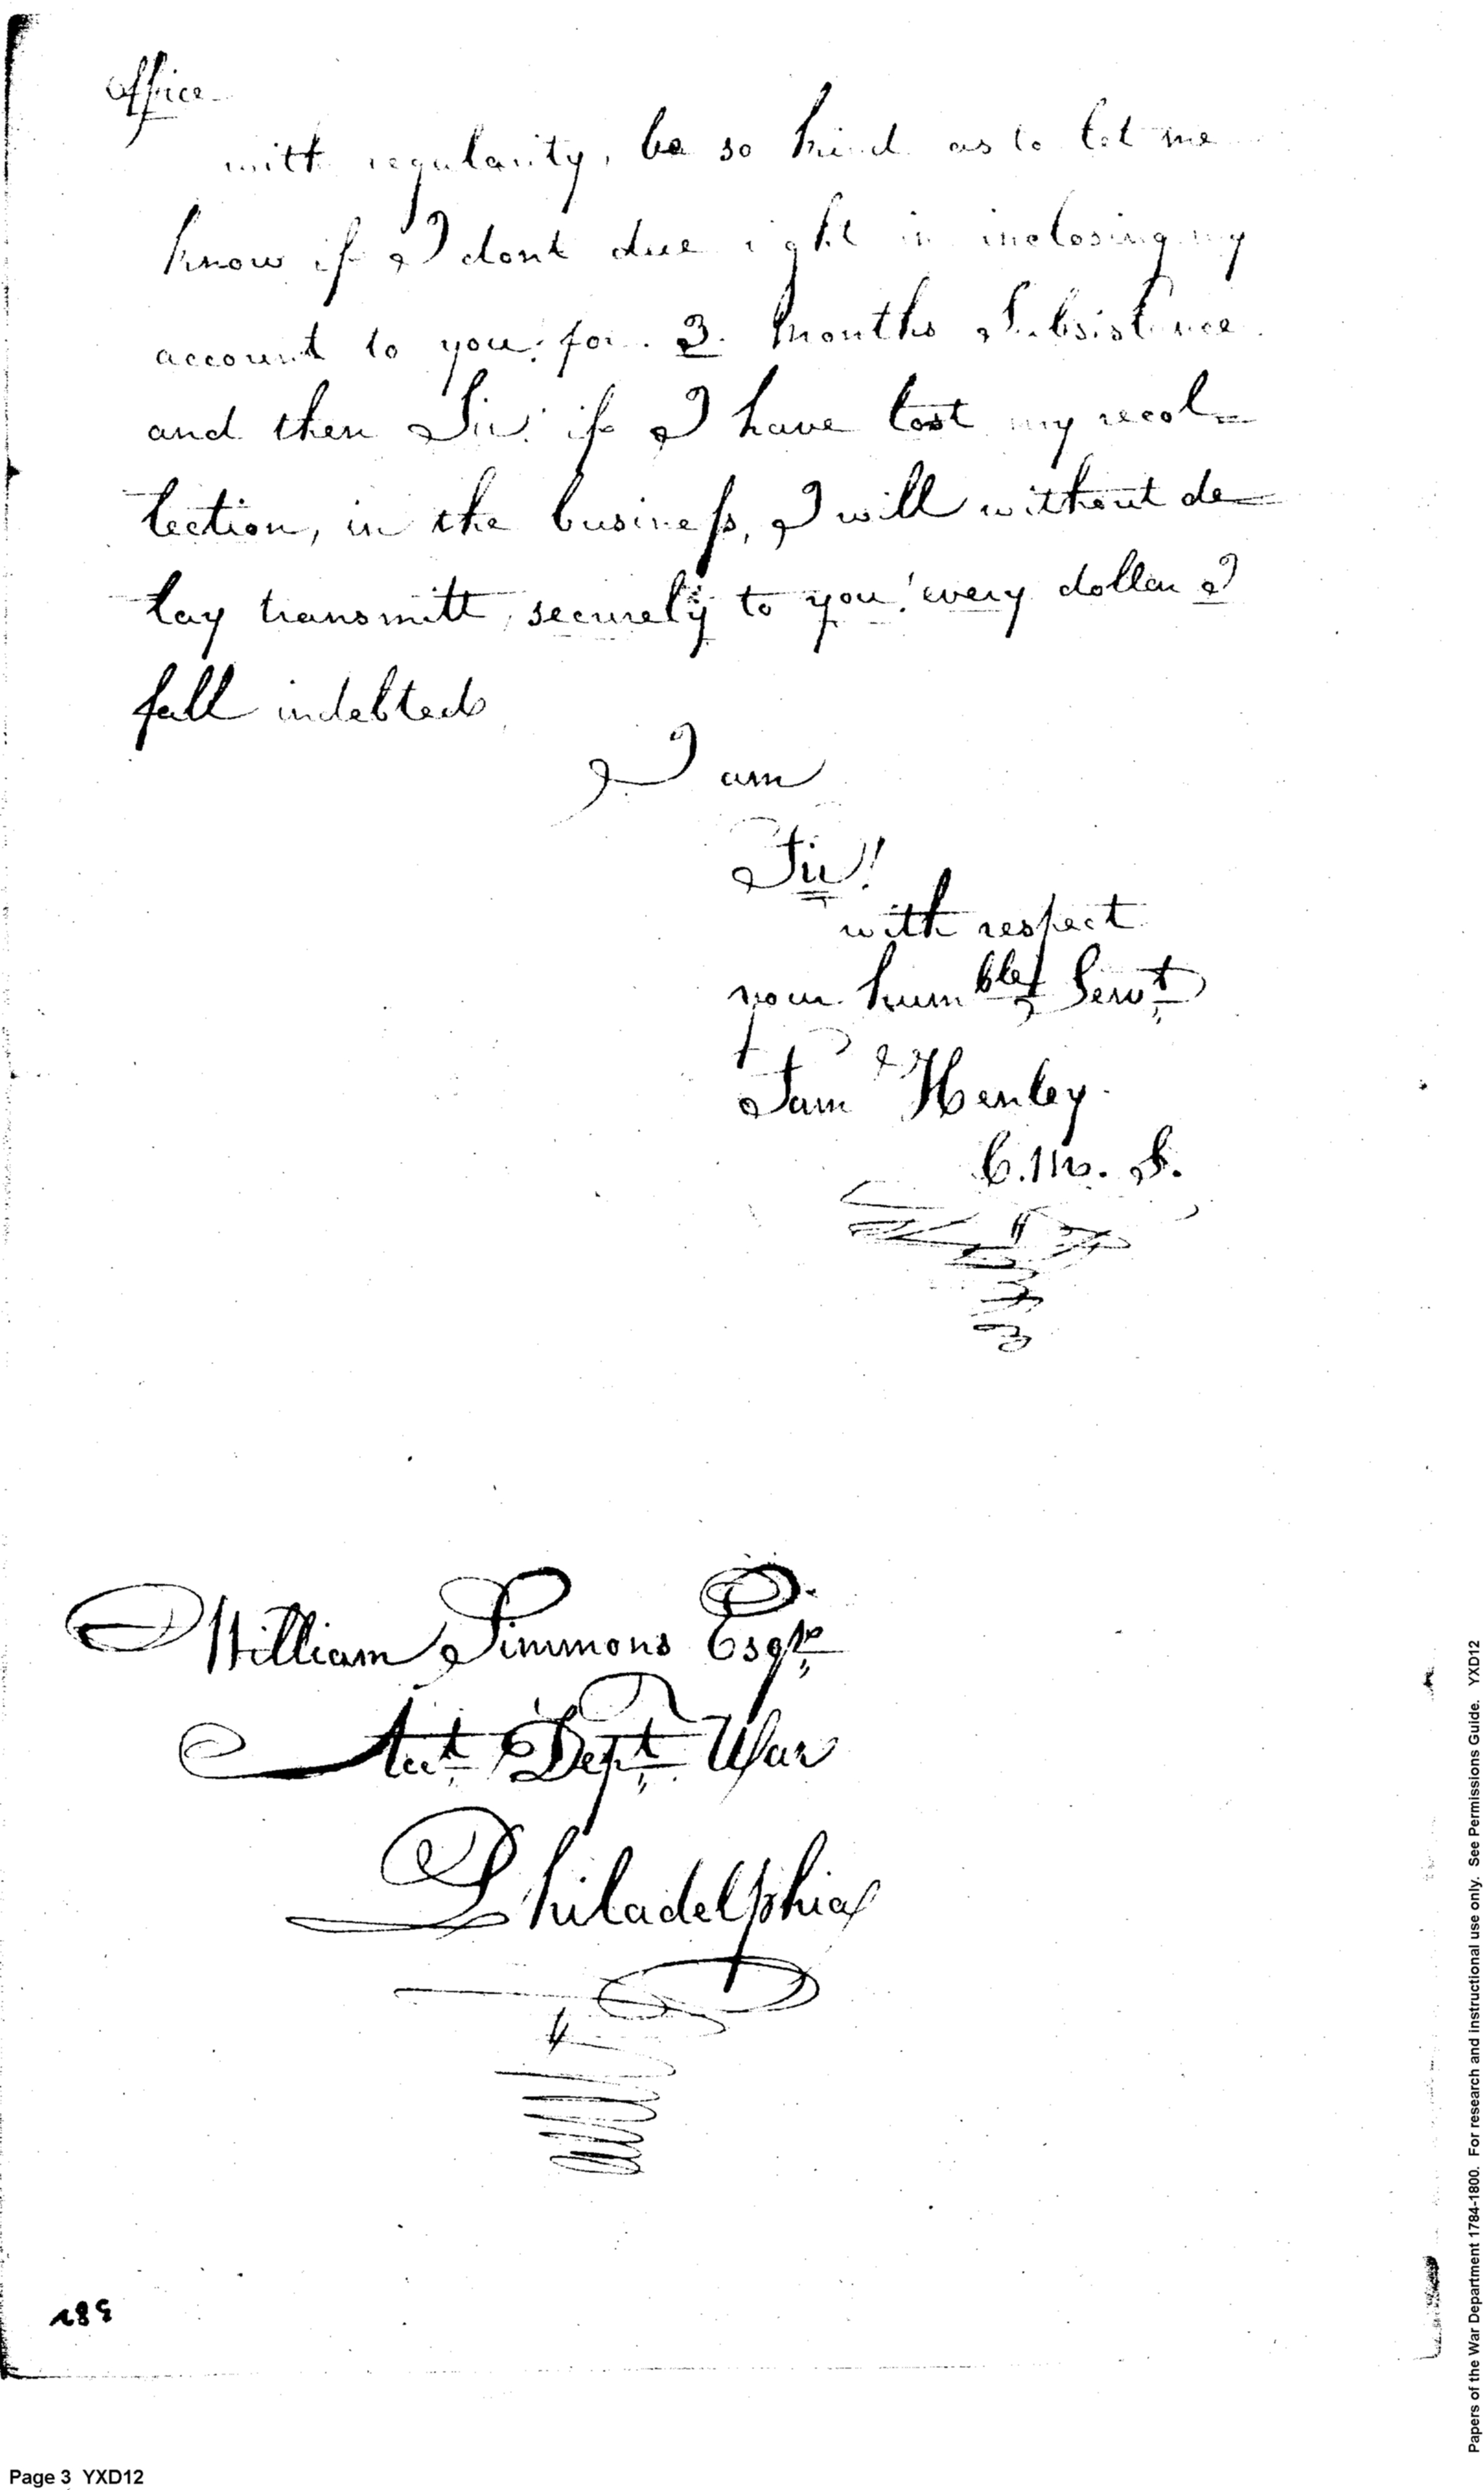 Office
with regularity, be so kind as to let me
know if I dont due right in inclosing my
account to you. for. 3. Months Subsistence
and then Sir. if I have lost my recol=
lection, in the business, I will without de
lay transmitt, securely to you! every dollar I
fall indebted
I am
Sir!
with respect
your humble Servt
Sam Henley.
C. M. S.
William Simmons Esqr
Acct Dept War
Philadelphia
Page 3 YXD12
Papers of the War Department 1784-1800. For research and instructional use only. See Permissions Guide. YXD12